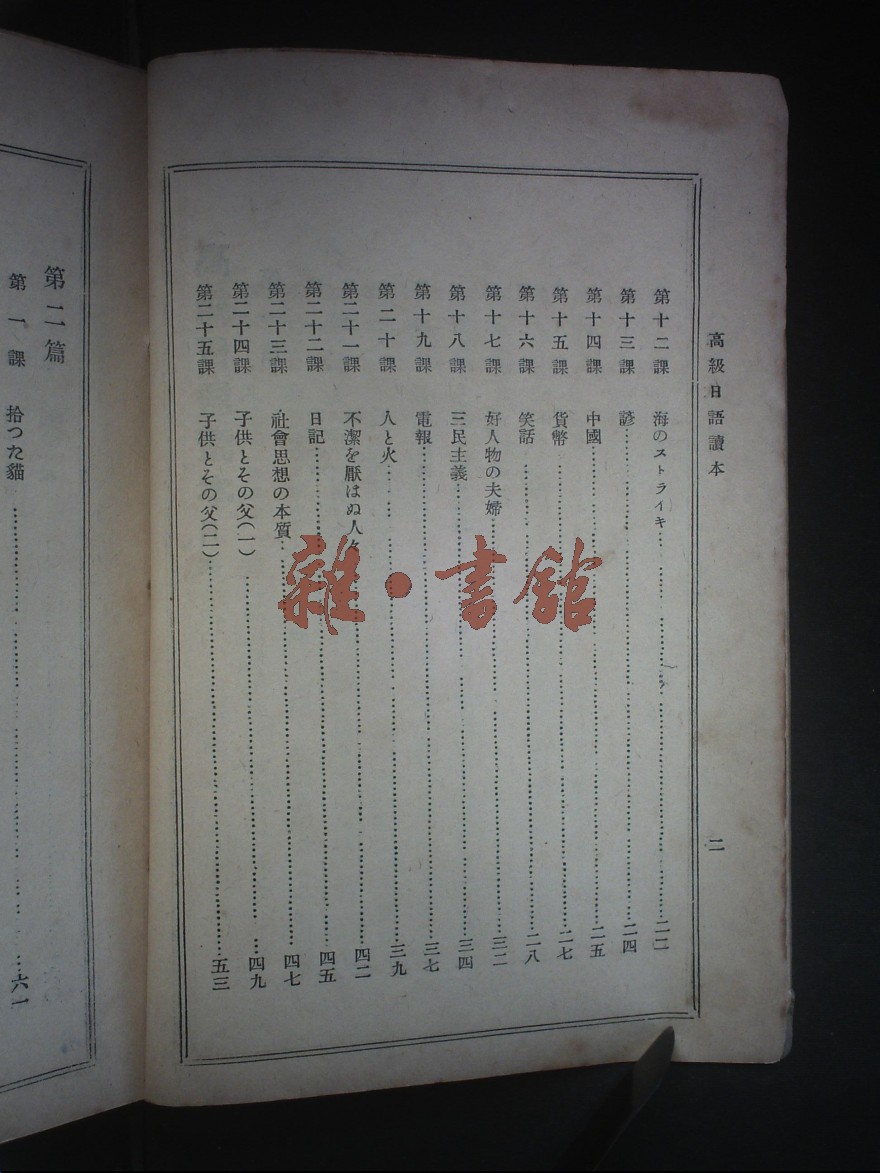 高級日語讀本
二
第十二課 海のストライキ 二二
第十三課 諺 二四
第十四課 中國 二五
第十五課 貨幣 二七
第十六課 笑話 二八
第十七課 好人物の夫婦 三二
第十八課 三民主義 三四
第十九課 電報 三七
第二十課 人と火 三九
第二十一課 不潔を厭はぬ人々 四二
第二十二課 日記 四五
第二十三課 社會思想の本質 四七
第二十四課 子供とその父(一) 四九
第二十五課 子供とその父(二) 五三
第二篇
第一課 拾つた猫 六一
雜·書館